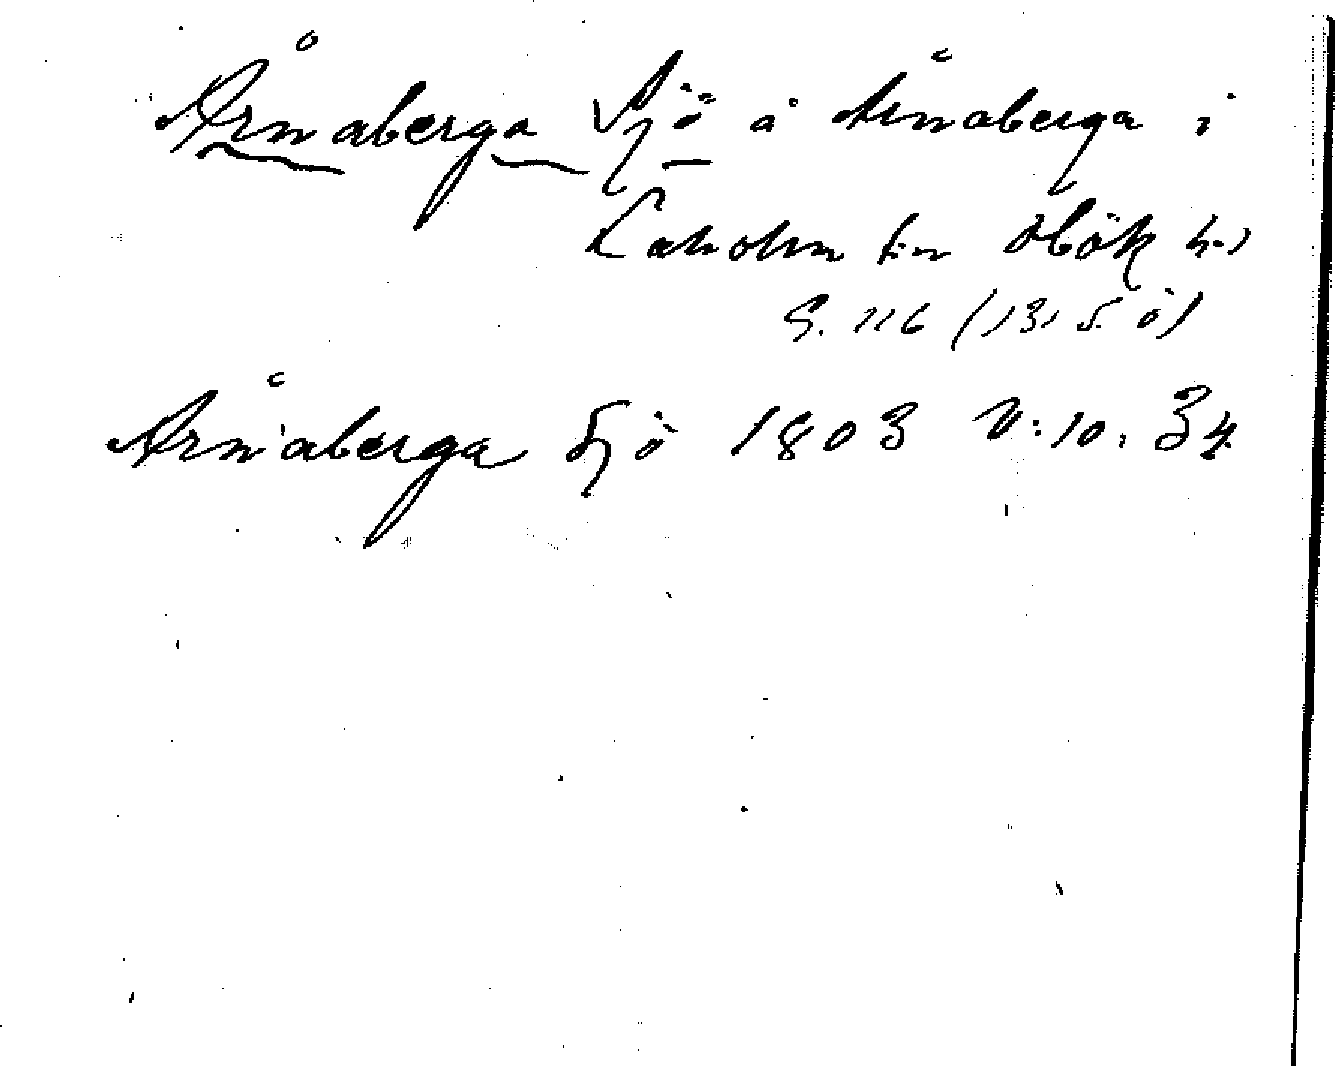 Årnaberga Sjö å Årnaberga i
Laholm sn Hök h.,
S. 116 (13, 5. ö)
Årnaberga Sjö 1803 V: 10: 34.